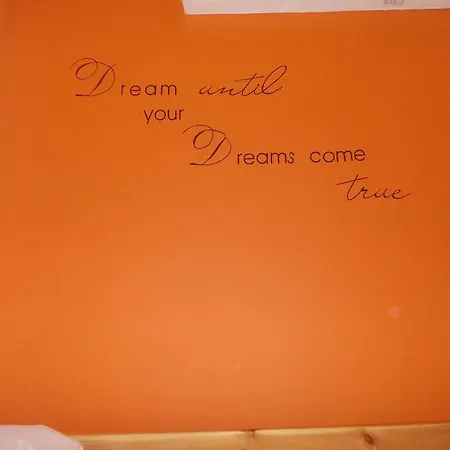 Dream until
your
Dreams come
true